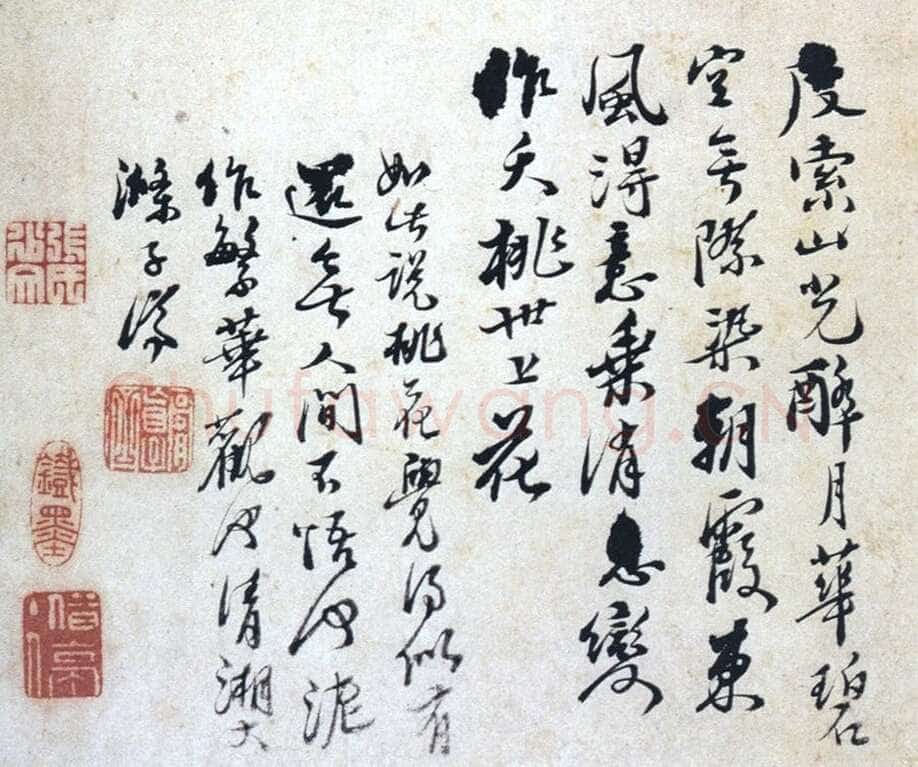 度索山光醉月華碧
空無際染朝霞東
風得意乘消息變
作夭桃世上花
如此說桃花覺得似有
還無人間不悟何泥
作繁華觀也清湘大
滌子濟
鐵墨
shufawang.CN